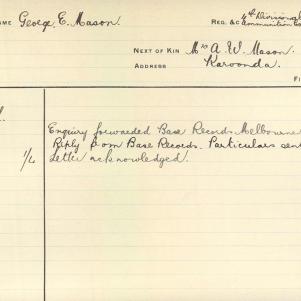 AME Geo. E. Mason
REG. &C 4th Divisional
Ammunition Co
NEXT OF KIN Mrs A. W. Mason.
ADDRESS Karoonda.
FI
Enquiry forwarded Base Records Melbourne
1/2 Reply from Base Records. Particulars sent
Letter acknowledged.